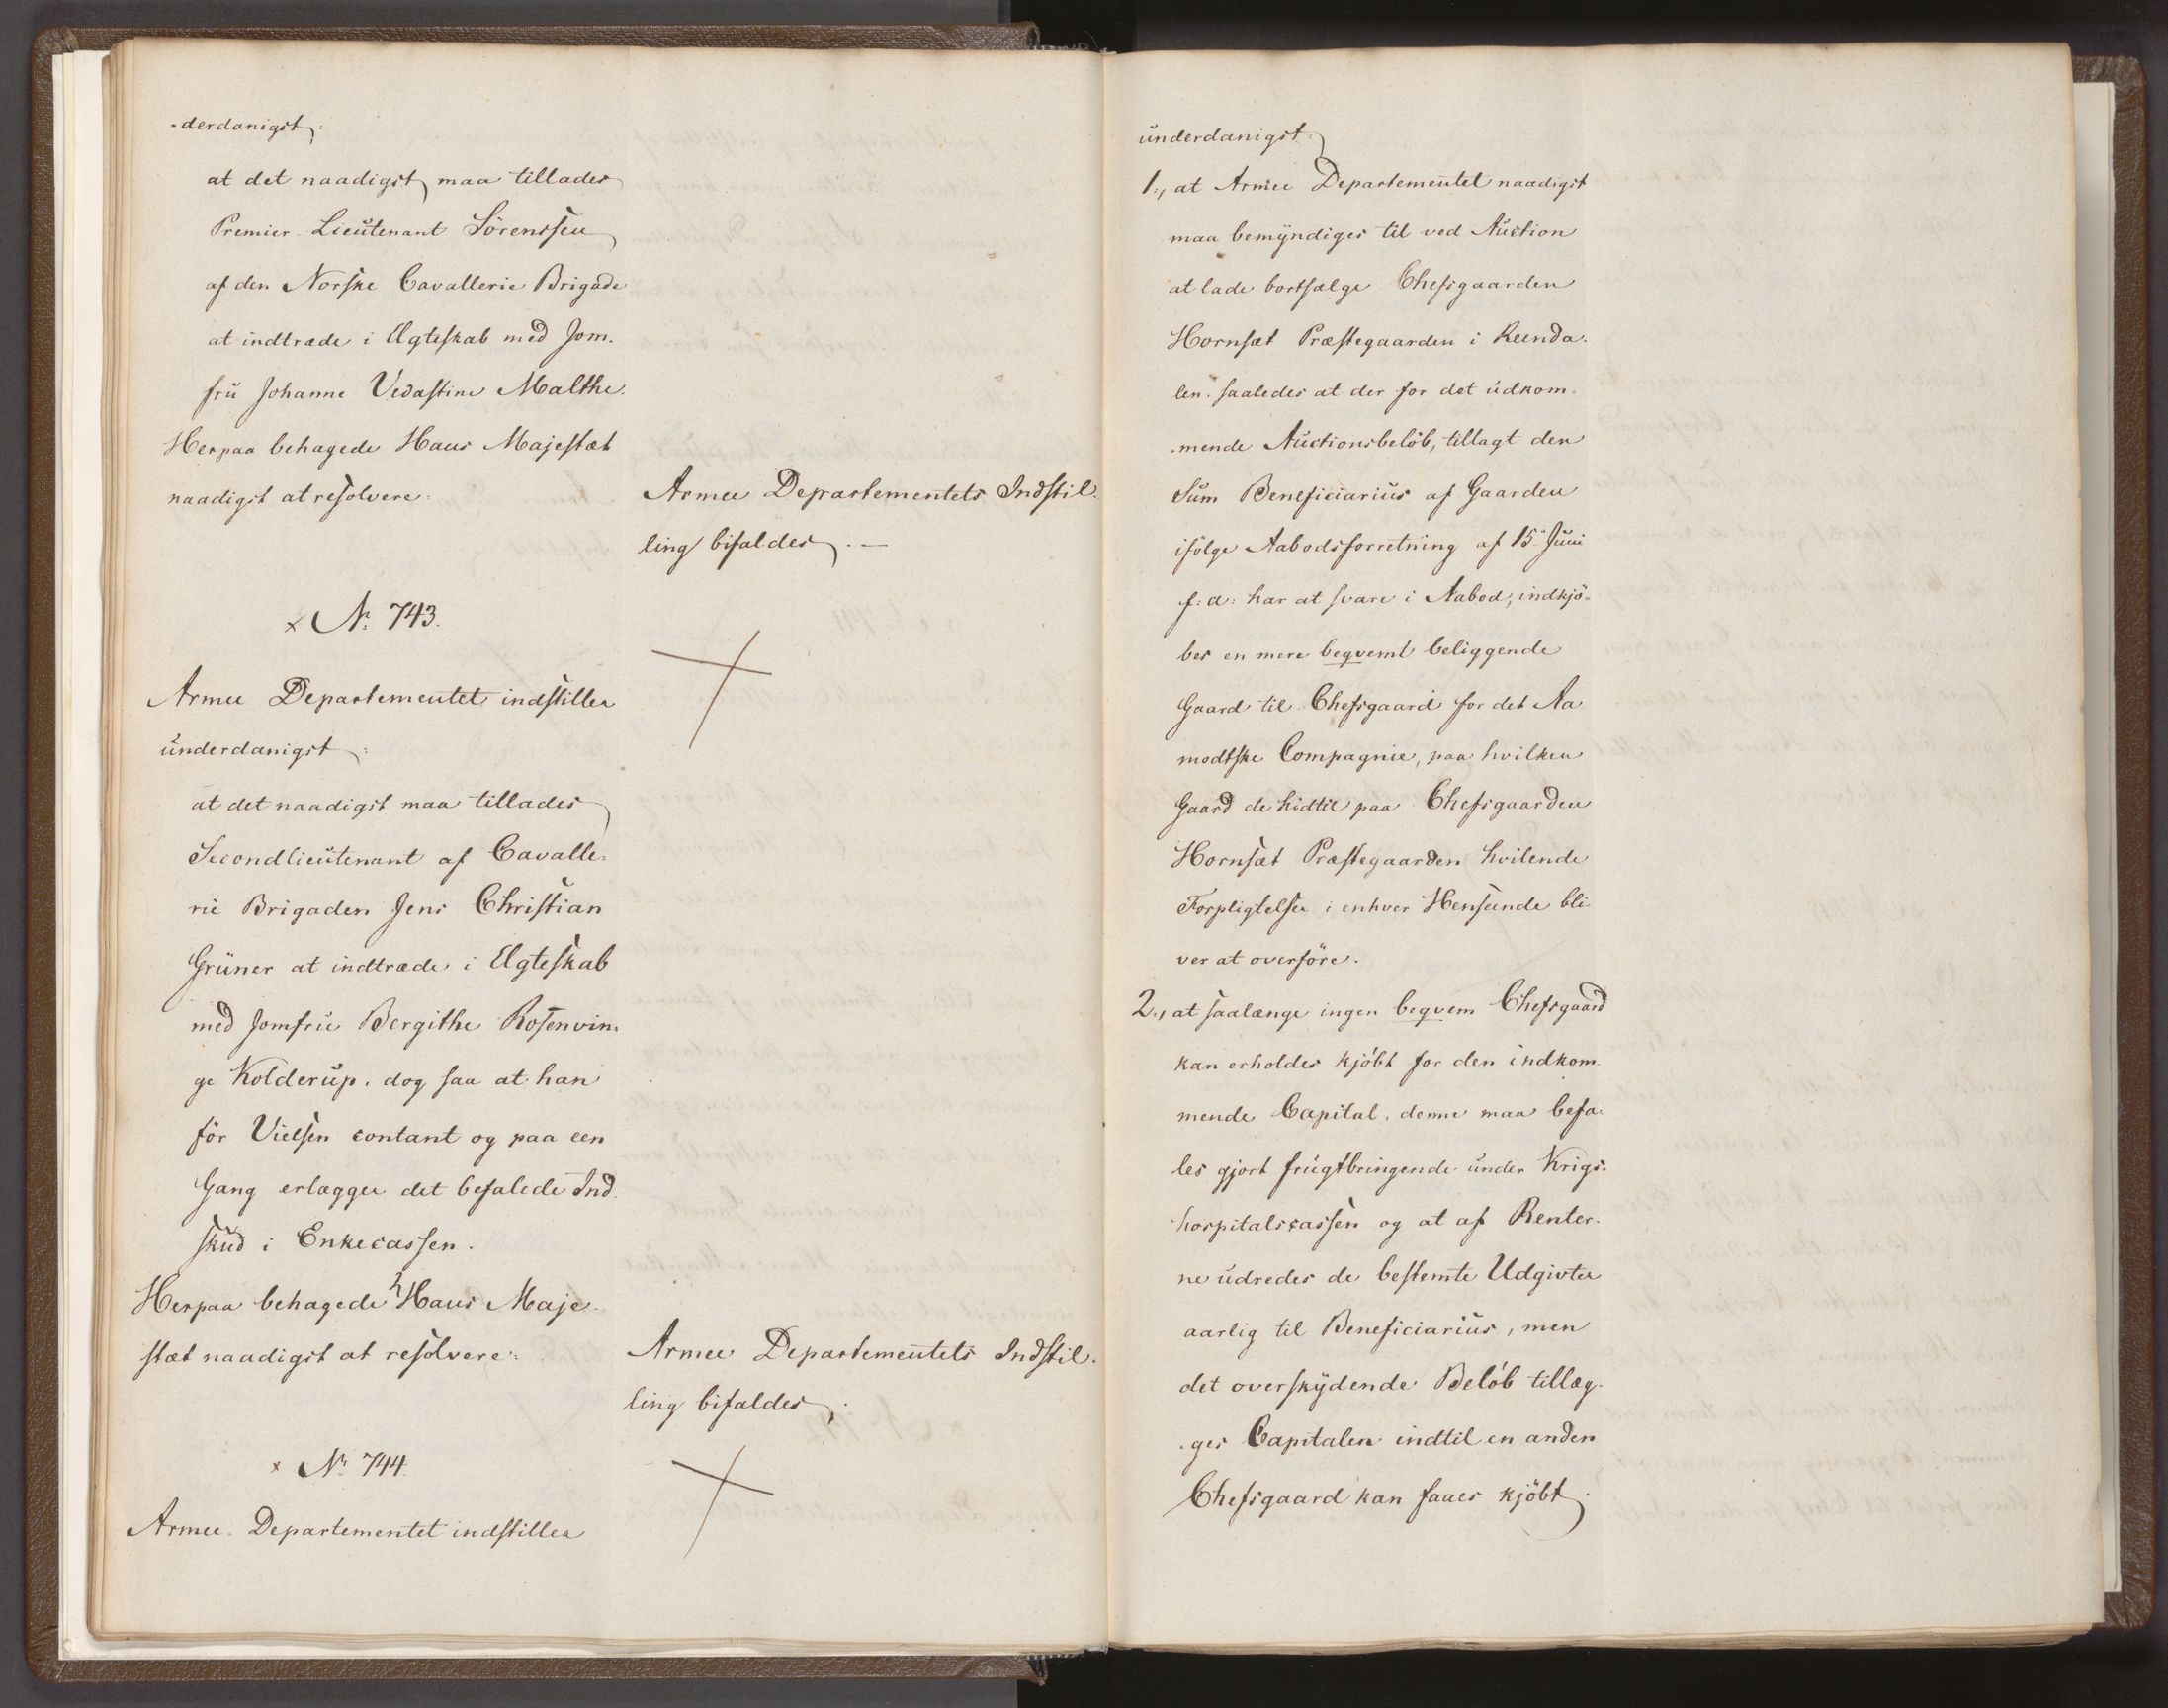 -derdanigst:
at det naadigst maa tillades
Premier Lieutenant Sörenssen
af den Norske Cavallerie Brigade
at indtræde i Ægteskab med Jom-
fru Johanne Vedastine Malthe.
Herpaa behagede Hans Majestæt
naadigst at resolvere:
Armee Departementets Indstil-
ling bifaldes. —
x No. 743.
Armee Departementet indstiller
underdanigst:
at det naadigst maa tillades
Secondlieutenant af Cavalle-
rie Brigaden Jens Christian
Grüner at indtræde i Ægteskab
med Jomfrue Bergithe Rosenvin-
ge Kolderup, dog saa at han
för Vielsen contant og paa een
Gang erlægger det befalede Ind-
skud i Enkecassen.
Herpaa behagede Hans Maje-
stæt naadigst at resolvere:
Armee Departementets Indstil-
ling bifaldes.
x No 744.
Armee Departementet indstiller
underdanigst:
1., at Armee Departementet naadigst
maa bemyndiges til ved Auction
at lade bortsælge Chefsgaarden
Hornsæt Præstegaarden i Reenda-
len, saaledes at der for det udkom-
mende Auctionsbelöb, tillagt den
Sum Beneficiarius af Gaarden
ifölge Aabodsforretning af 15de Juni
f: a: har at svare i Aabod, indkjö-
bes en mere beqvemt beliggende
Gaard til Chefsgaard for det Aa-
modtske Compagnie, paa hvilken
Gaard de hidtil paa Chefsgaarden
Hornsæt Præstegaarden hvilende
Forpligtelser i enhver Henseende bli-
ver at overföre.
2., at saalænge ingen beqvem Chefsgaard
kan erholdes kjöbt for den indkom-
mende Capital, denne maa befa-
les gjort frugtbringende under Krigs-
hospitalscassen og at af Renter-
ne udredes de bestemte Udgivter
aarlig til Beneficiarius, men
det overskydende Belöb tillæg-
-ges Capitalen indtil en anden
Chefsgaard kan faaes kjöbt.